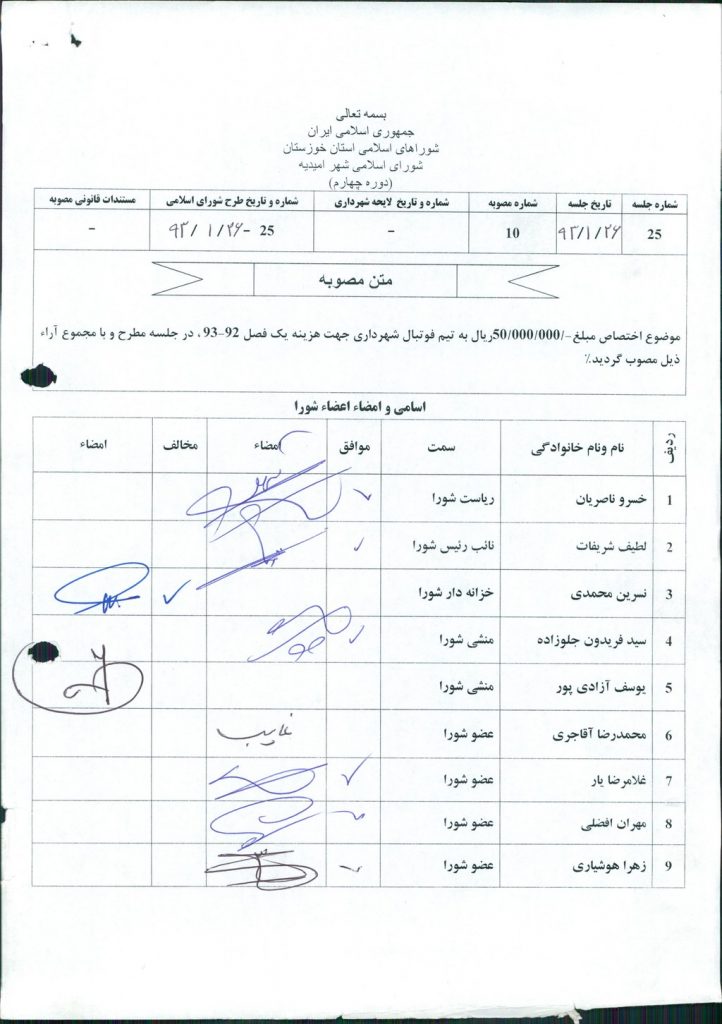 بسمه تعالی
جمهوری اسلامی ایران
شوراهای اسلامی استان خوزستان
شورای اسلامی شهر امیدیه
(دوره چهارم)
شماره جلسه تاریخ جلسه شماره مصوبه شماره و تاریخ لایحه شهرداری شماره و تاریخ طرح شورای اسلامی مستندات قانونی مصوبه
25 ۹۳/۱/۲۶ 10 – 25 - ۹۳/۱/۲۶ –
متن مصوبه
موضوع اختصاص مبلغ -/50/000/000ریال به تیم فوتبال شهرداری جهت هزینه یک فصل 92-93 ، در جلسه مطرح و با مجموع آراء
ذیل مصوب گردید٪
اسامی و امضاء اعضاء شورا
ردیف نام ونام خانوادگی سمت موافق امضاء مخالف امضاء
1 خسرو ناصریان ریاست شورا ✓
2 لطیف شریفات نائب رئیس شورا ✓
3 نسرین محمدی خزانه دار شورا ✓
4 سید فریدون جلوزاده منشی شورا ✓
5 یوسف آزادی پور منشی شورا
6 محمدرضا آقاجری عضو شورا غایب
7 غلامرضا یار عضو شورا ✓
8 مهران افضلی عضو شورا ✓
9 زهرا هوشیاری عضو شورا ✓